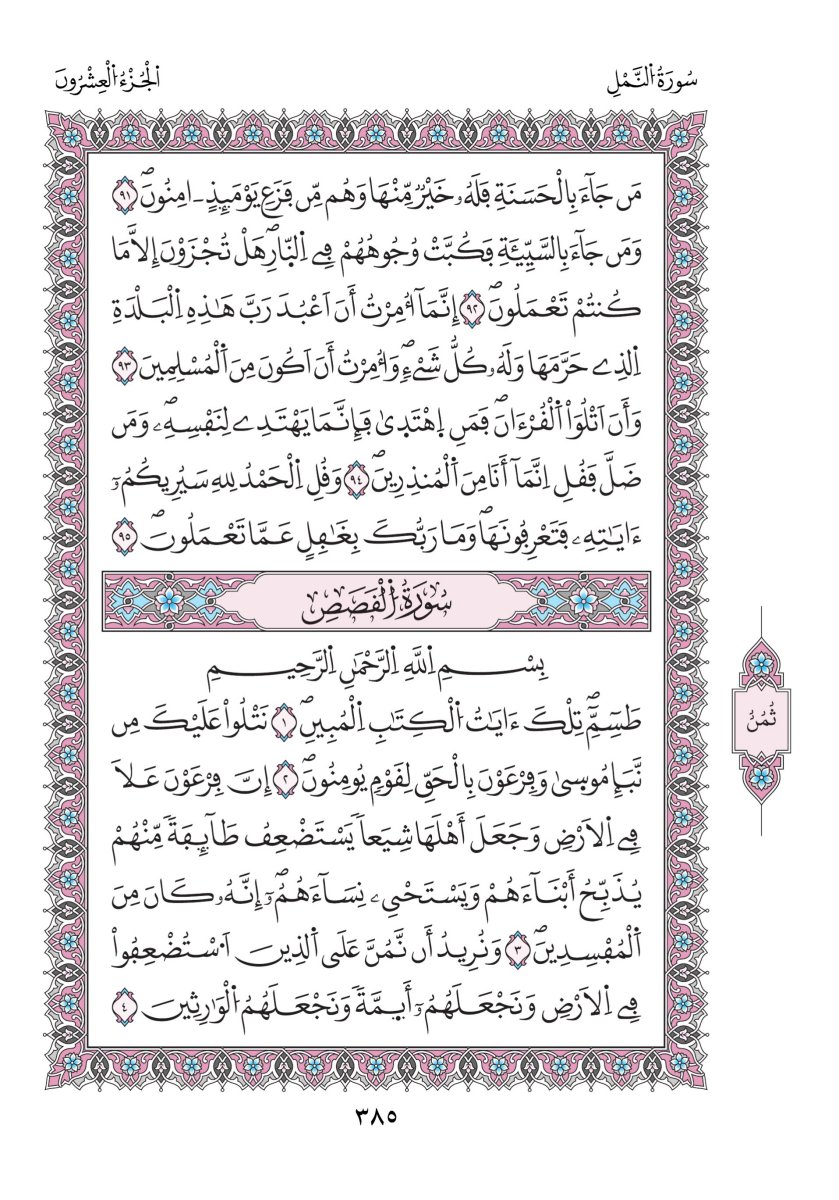 سُورَةُ النَّمْلِ
الْجُزْءُ الْعِشْرُونَ
مَن جَآءَ بِالْحَسَنَةِ فَلَهُۥ خَيْرٌ مِّنْهَا وَهُم مِّن فَزَعِ يَوْمَئِذٍ ـ امِنُونَۖ ٩١
وَمَن جَآءَ بِالسَّيِّئَةِ فَكُبَّتْ وُجُوهُهُمْ فِے اِ۬لنّ۪ارِۖ هَلْ تُجْزَوْنَ إِلاَّ مَا
كُنتُمْ تَعْمَلُونَۖ ٩٢ إِنَّمَآ أُمِرْتُ أَنَ اَعْبُدَ رَبَّ هَٰذِهِ اِ۬لْبَلْدَةِ
اِ۬لذِے حَرَّمَهَا وَلَهُۥ كُلُّ شَےْءٖۖ وَأُمِرْتُ أَنَ اَكُونَ مِنَ اَ۬لْمُسْلِمِينَ ٩٣
وَأَنَ اَتْلُوَاْ اَ۬لْقُرْءَانَۖ فَمَنِ اِ۪هْتَد۪ىٰ فَإِنَّمَا يَهْتَدِے لِنَفْسِهِۦۖ وَمَن
ضَلَّ فَقُلِ اِنَّمَآ أَنَا مِنَ اَ۬لْمُنذِرِينَۖ ٩٤ وَقُلِ اِ۬لْحَمْدُ لِلهِ سَيُرِيكُمُۥٓ
ءَايَٰتِهِۦ فَتَعْرِفُونَهَاۖ وَمَا رَبُّكَ بِغَٰفِلٍ عَمَّا تَعْمَلُونَۖ ٩٥
سُورَةُ الْقَصَصِ
بِسْمِ اِ۬للَّهِ اِ۬لرَّحْمَٰنِ اِ۬لرَّحِيمِ
طَسِٓمِّٓۖ تِلْكَ ءَايَٰتُ اُ۬لْكِتَٰبِ اِ۬لْمُبِينِۖ ١ نَتْلُواْ عَلَيْكَ مِن
نَّبَإِ مُوس۪ىٰ وَفِرْعَوْنَ بِالْحَقِّ لِقَوْمٖ يُومِنُونَۖ ٢ إِنَّ فِرْعَوْنَ عَلَا
فِے اِ۬لَارْضِ وَجَعَلَ أَهْلَهَا شِيَعاٗ يَسْتَضْعِفُ طَآئِفَةٗ مِّنْهُمْ
يُذَبِّحُ أَبْنَآءَهُمْ وَيَسْتَحْيِۦ نِسَآءَهُمُۥٓۖ إِنَّهُۥ كَانَ مِنَ
اَ۬لْمُفْسِدِينَۖ ٣ وَنُرِيدُ أَن نَّمُنَّ عَلَى اَ۬لذِينَ اَ۟سْتُضْعِفُواْ
فِے اِ۬لَارْضِ وَنَجْعَلَهُمُۥٓ أَئِمَّةٗ وَنَجْعَلَهُمُ اُ۬لْوَٰرِثِينَ ٤
ثُمُنُ
٣٨٥